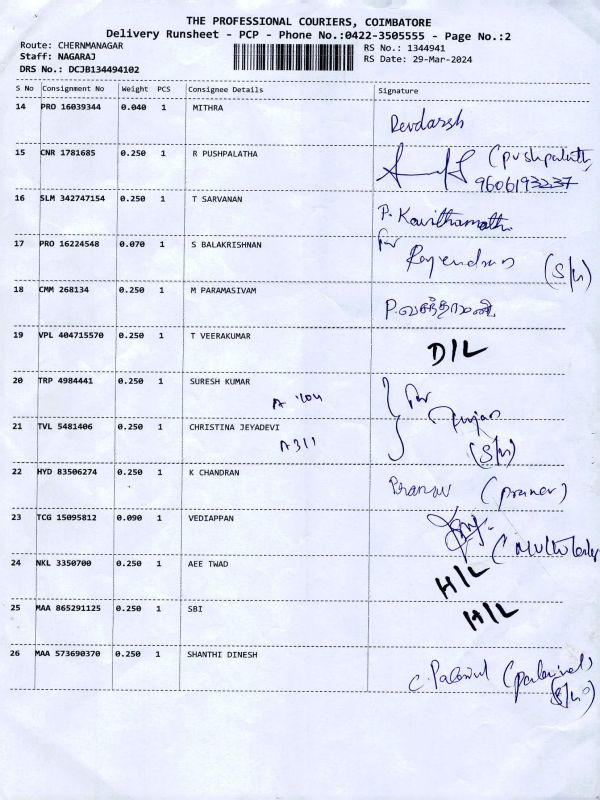 THE PROFESSIONAL COURIERS, COIMBATORE
Delivery Runsheet - PCP - Phone No.:0422-3505555 - Page No.:2
Route: CHERNMANAGAR
RS No.: 1344941
Staff: NAGARAJ
RS Date: 29-Mar-2024
DRS No.: DCJB134494102
S No Consignment No Weight PCS Consignee Details Signature
14 PRO 16039344 0.040 1 MITHRA
Devdarsh
15 CNR 1781685 0.250 1 R PUSHPALATHA
(Pushpalatha
9606193237
16 SLM 342747154 0.250 1 T SARVANAN
P. Kavithamathi
17 PRO 16224548 0.070 1 S BALAKRISHNAN
for
Rajendran (S/H)
18 CMM 268134 0.250 1 M PARAMASIVAM
P.வசந்தாமணி
19 VPL 404715570 0.250 1 T VEERAKUMAR
D/L
20 TRP 4984441 0.250 1 SURESH KUMAR
A 104
for
21 TVL 5481406 0.250 1 CHRISTINA JEYADEVI
A311
(S/H)
22 HYD 83506274 0.250 1 K CHANDRAN
Pranav (pranav)
23 TCG 15095812 0.090 1 VEDIAPPAN
24 NKL 3350700 0.250 1 AEE TWAD
H/L
25 MAA 865291125 0.250 1 SBI
H/L
26 MAA 573690370 0.250 1 SHANTHI DINESH
C. Palanivel (palanivel)
(S/H)